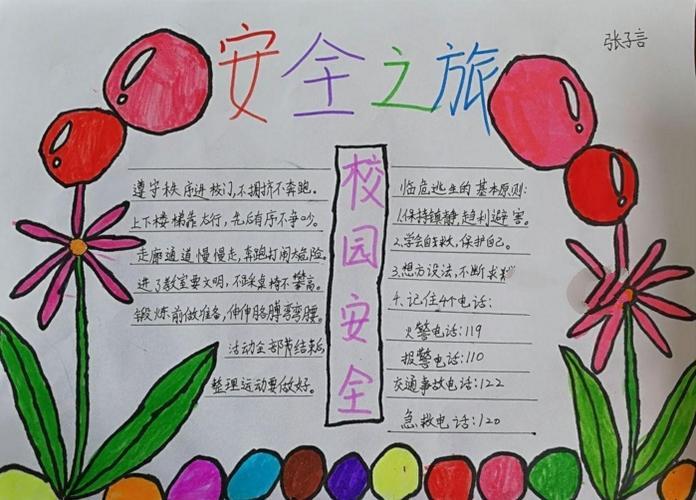 安全之旅
张子言
遵守秩序进校门,不拥挤不奔跑。
上下楼梯靠右行,先后有序不争吵。
走廊通道慢慢走,奔跑打闹太危险。
进了教室要文明,不踩桌椅不攀高。
锻炼前做准备,伸伸胳膊弯弯腰。
活动全部结束后
整理运动要做好。
校园安全
临危逃生的基本原则:
1.保持镇静,趋利避害。
2.学会自救,保护自己。
3.想方设法,不断求
4.记住4个电话:
火警电话:119
报警电话:110
交通事故电话:122
急救电话:120